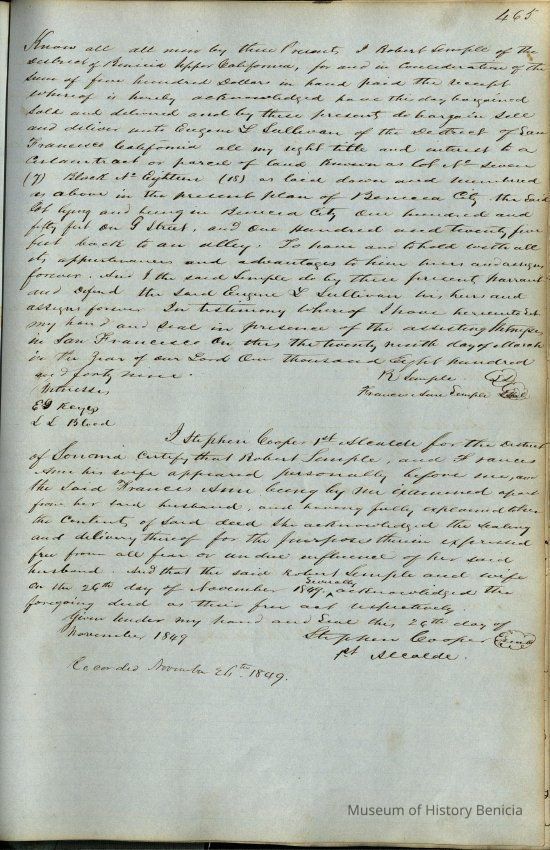 465
Know all all men by these Presents I Robert Semple of the
District of Benicia Upper California, for and in Consideration of the
Sum of five hundred Dollars in hand paid the receipt
whereof is hereby acknowledged have this day bargained
Sold and delivered and by these presents do bargain Sell
and deliver unto Eugene L Sullivan of the District of San
Francisco California all my right title and interest to a
Certain tract or parcel of land known as Lot No seven
(7) Block No Eighteen (18) as laid down and numbered
as above in the present plan of Benicia City the said
Lot lying and being in Benicia City One hundred and
fifty feet on G Street, and One hundred and twenty five
feet back to an alley. To have and to hold with all
its appurtenances and advantages to him heirs and assigns
forever. And I the said Semple do by these present warrant
and defend the said Eugene L Sullivan his heirs and
assigns forever In testimony whereof I have hereunto Set
my hand and Seal in presence of the attesting
in San Francisco On this the twenty ninth day of March
in the Year of our Lord One thousand Eight hundred
and forty nine.
R Semple
Witnesses
Frances Ann Semple Seal
E D Keyes
L L Blood
I Stephen Cooper 1st Alcalde for the District
of Sonoma Certify that Robert Semple, and Frances
Ann his wife appeared personally before me, and
the said Frances Ann being by me examined apart
from her said husband, and having fully explained to her
the Contents of said deed She acknowledged the Sealing
and delivery thereof for the purposes therein expressed
free from all fear or undue influence of her said
husband. And that the said Robert Semple and wife
On the 26th day of November 1849, Severally acknowledged the
foregoing deed as their free act respectively.
Given under my hand and Seal this 26th day of
November 1849
Stephen Cooper Seal
1st Alcalde.
Recorded November 26th 1849.
Museum of History Benicia